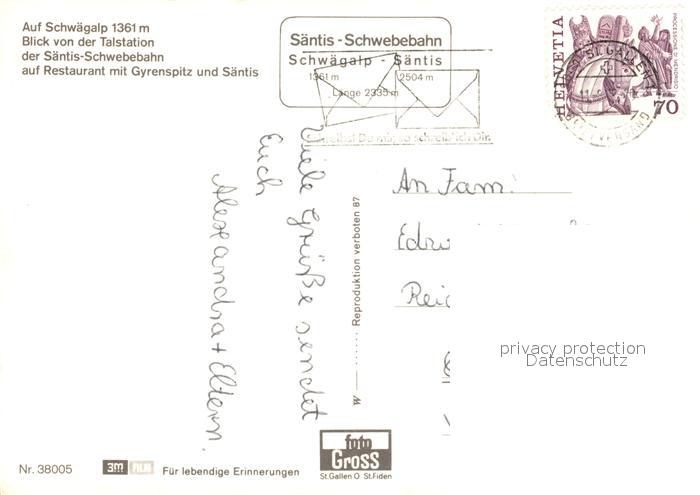 Auf Schwägalp 1361 m
Blick von der Talstation
der Säntis-Schwebebahn
auf Restaurant mit Gyrenspitz und Säntis
Säntis-Schwebebahn
Schwägalp - Säntis
1361 m 2504 m
Länge 2335 m
schreib ich Dir.
HELVETIA
70
ST. GALLEN
Viele Grüße sendet
Euch
Alexandra + Eltern.
Reproduktion verboten 87
An Fam.
privacy protection
Datenschutz
Nr. 38005
3M
Für lebendige Erinnerungen
foto
GROSS
St.Gallen O St.Fiden